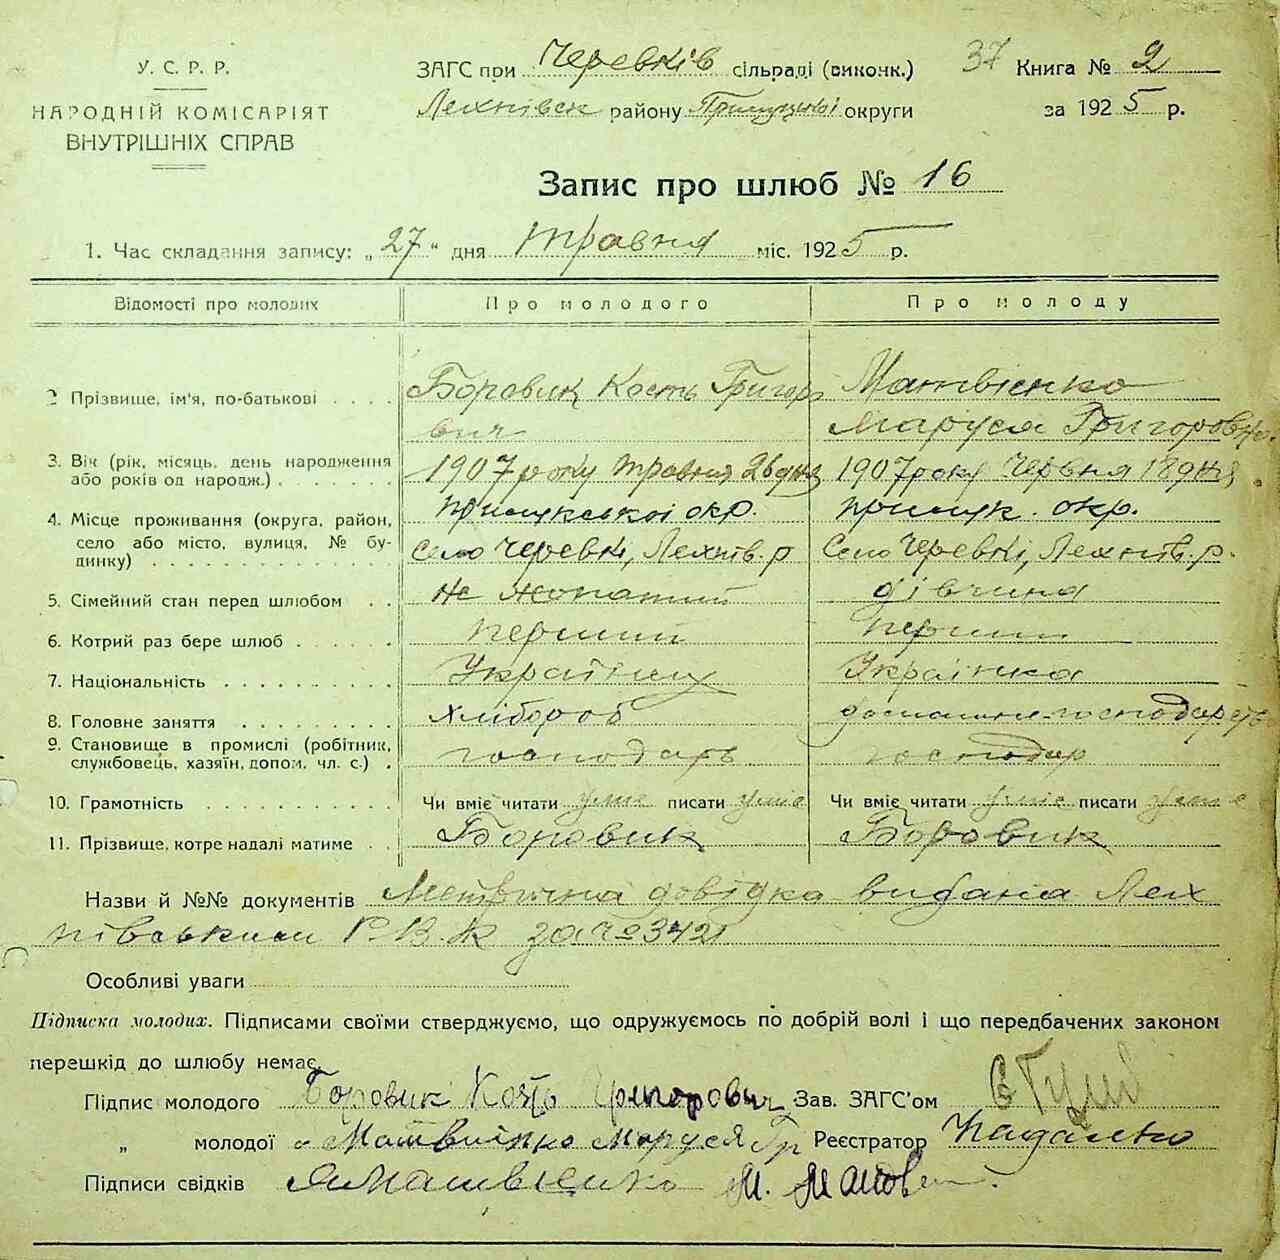 У. С. Р. Р.
НАРОДНІЙ КОМІСАРІЯТ
ВНУТРІШНІХ СПРАВ
ЗАГС при Черевків сільраді (виконк.) 37 Книга № 2
Лехнівск району Прилуцької округи за 1925 р.
Запис про шлюб № 16
1. Час складання запису: „27“ дня травня міс. 1925 р.
Відомості про молодих Про молодого Про молоду
2 Прізвище, ім'я, по-батькові Боровик Кость Григоро Матвієнко
вич Маруся Григоровна
3. Вік (рік, місяць, день народження 1907 року травня 26 дня 1907 року Червня 18 дня
або років од народж.)
4. Місце проживання (округа, район, Прилукської окр. Прилук. окр.
село або місто, вулиця, № бу- Село Черевкі, Лехнів. р Село Черевкі, Лехнів. р.
динку)
5. Сімейний стан перед шлюбом Не жонатий дівчина
6. Котрий раз бере шлюб перший перший
7. Національність Українец Українка
8. Головне заняття хлібороб домашня господарств
9. Становище в промислі (робітник, господарь господар
службовець, хазяїн, допом, чл. с.)
10. Грамотність Чи вміє читати уміє писати уміє Чи вміє читати уміє писати уміє
11. Прізвище, котре надалі матиме Боровик Боровик
Назви й №№ документів Метрична довідка видана Лех
нівським Р.В.К за № 3421
Особливі уваги
Підписка молодих. Підписами своїми стверджуємо, що одружуємось по добрій волі і що передбачених законом
перешкід до шлюбу немає.
Підпис молодого Боровик Кость Григорович Зав. ЗАГС'ом
„ молодої Матвиінко Маруся Гр Реєстратор
Підписи свідків ЯМатвієнко М.